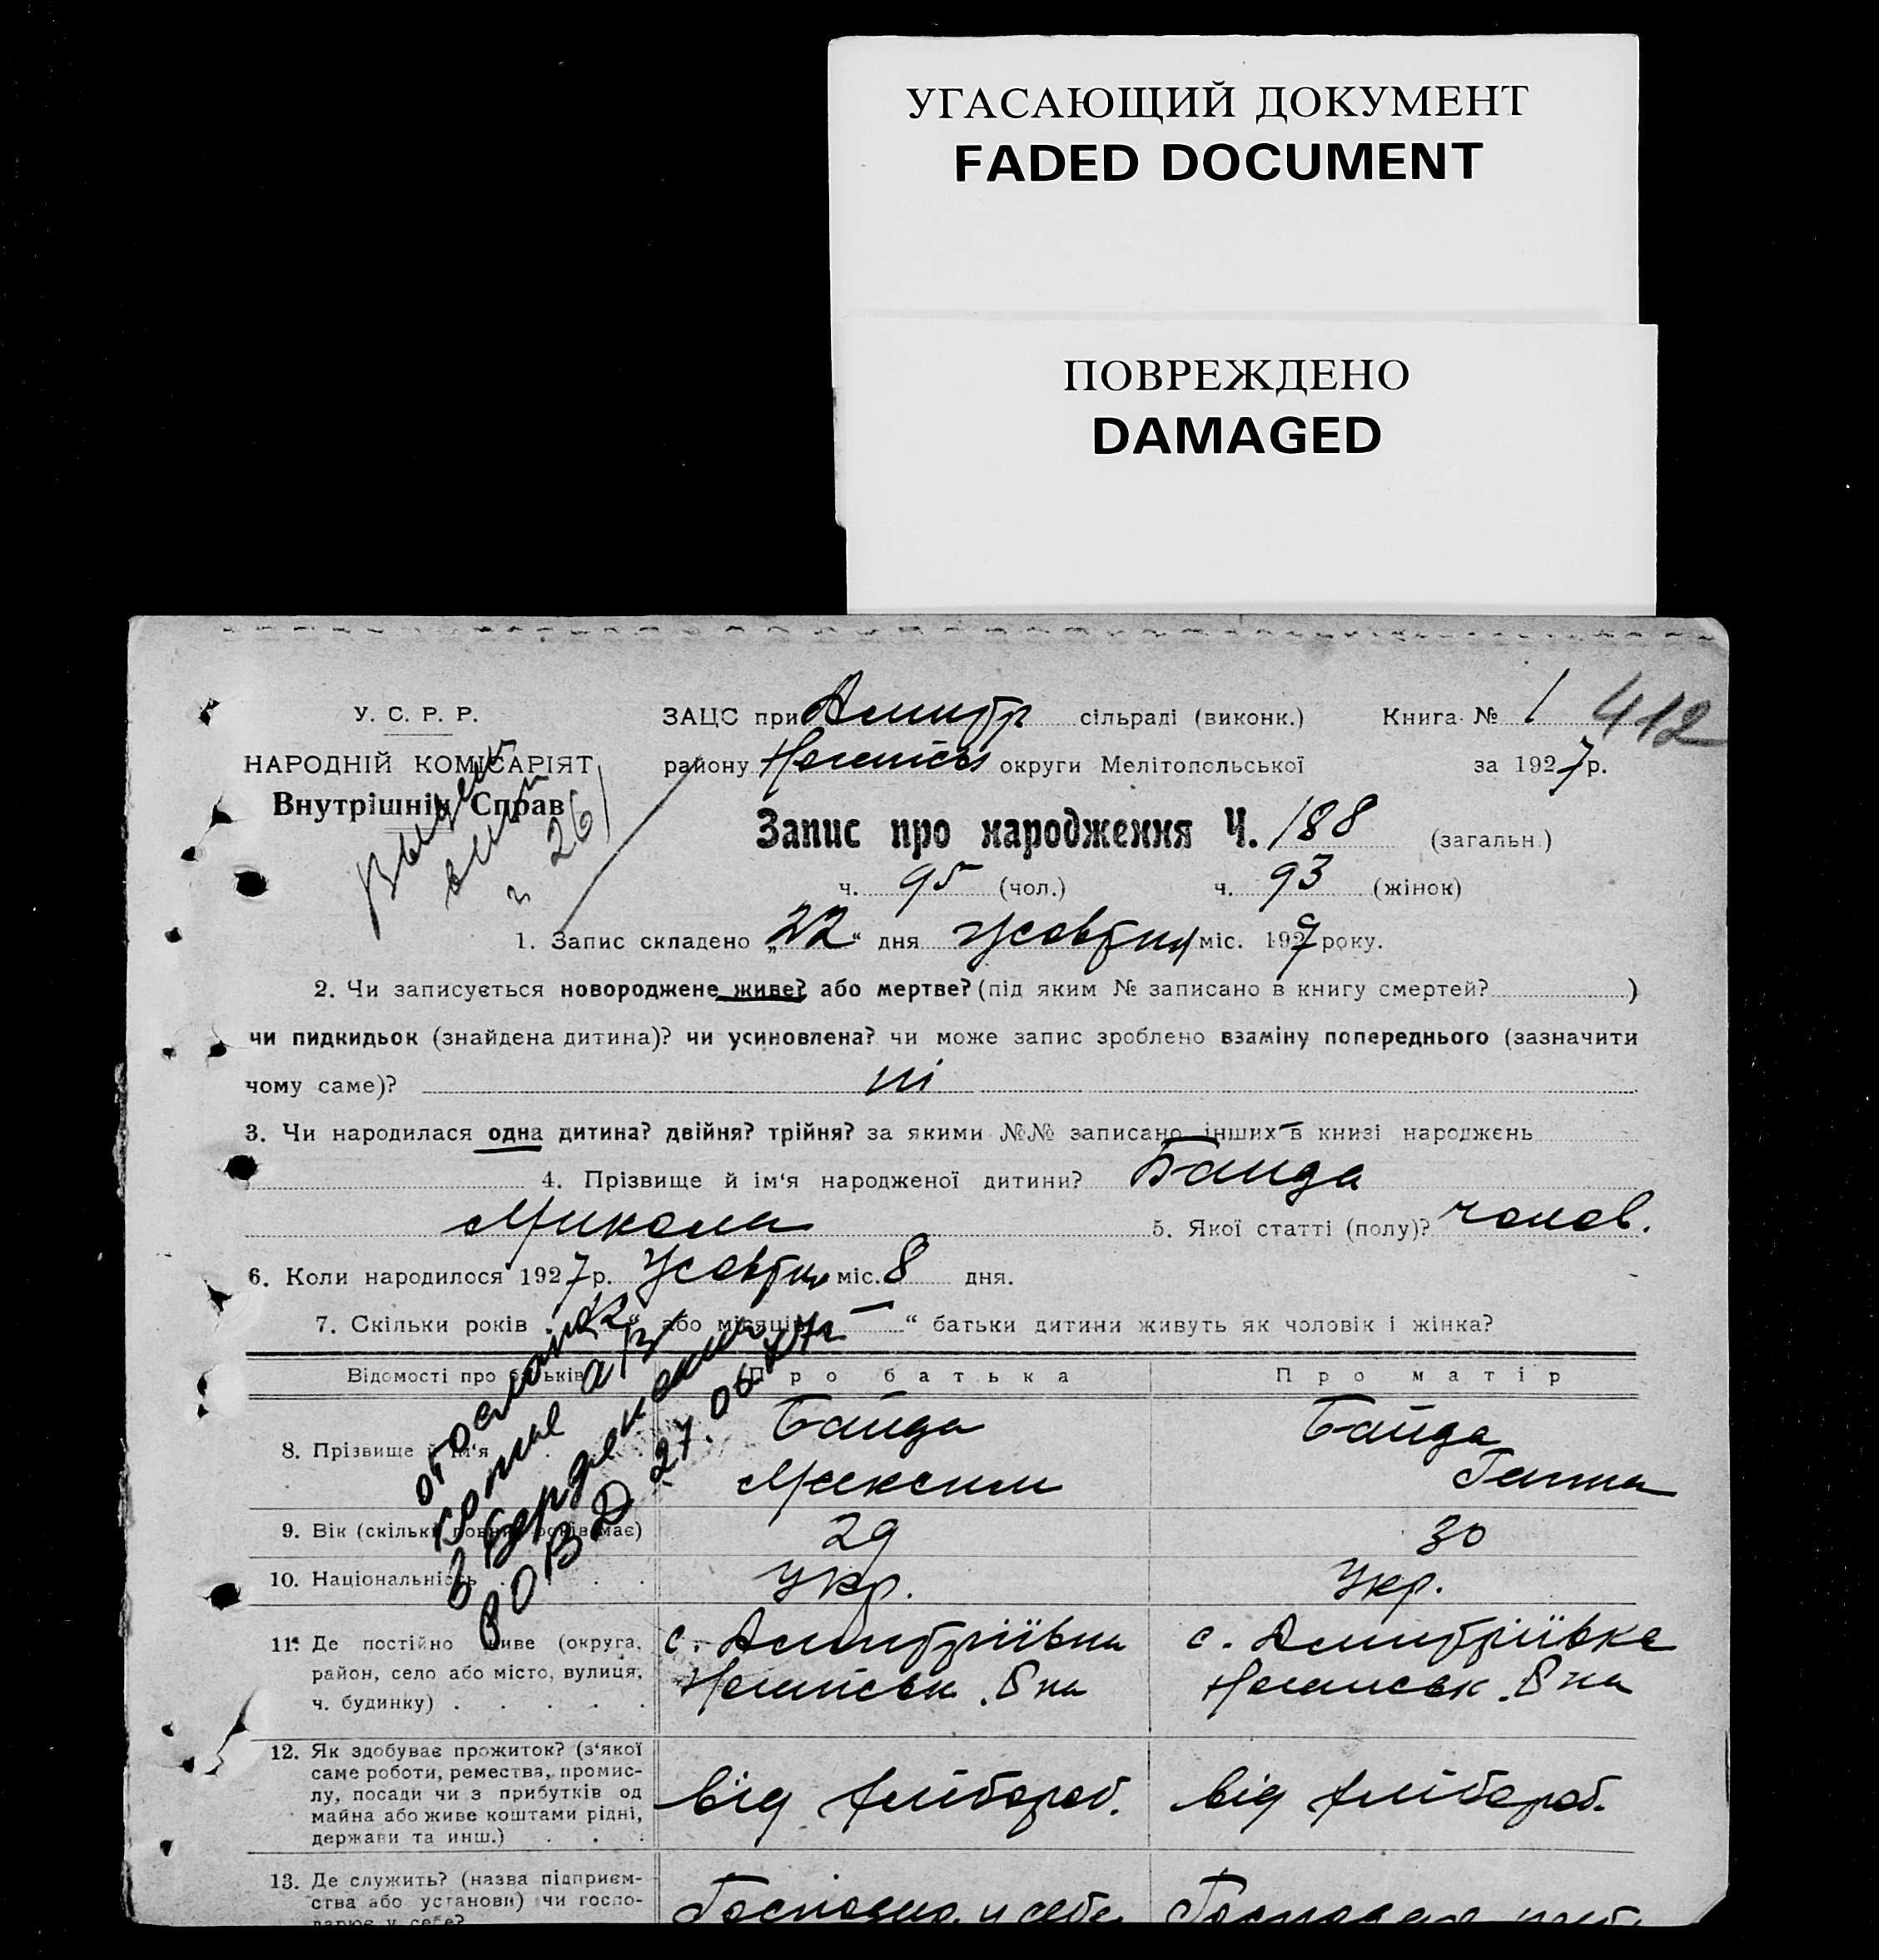 УГАСАЮЩИЙ ДОКУМЕНТ
FADED DOCUMENT
ПОВРЕЖДЕНО
DAMAGED
У. С. Р. Р.
НАРОДНІЙ КОМІСАРІЯТ
Внутрішніх Справ
ЗАЦС при Дмитр сільраді (виконк.) Книга № 1 412
району Ногайськ округи Мелітопольської за 1927 р.
Запис про народження Ч. 188 (загальн.)
ч. 95 (чол.) ч. 93 (жінок)
1. Запис складено „22“ дня Жовтня міс. 1927 року.
2. Чи записується новороджене живе? або мертве? (під яким № записано в книгу смертей? )
чи пидкидьок (знайдена дитина)? чи усиновлена? чи може запис зроблено взаміну попереднього (зазначити
чому саме)? ні
3. Чи народилася одна дитина? двійня? трійня? за якими №№ записано інших в книзі народжень
4. Прізвище й ім‘я народженої дитини? Байда
Микола 5. Якої статті (полу)? чолов.
6. Коли народилося 1927 р. Жовтня міс. 8 дня.
7. Скільки років „ “ або місяців „ — “ батьки дитини живуть як чоловік і жінка?
Відомості про батьків Про батька Про матір
8. Прізвище й ім‘я Байда Байда
Максим Ганна
9. Вік (скільки повних років має) 29 30
10. Національність Укр. Укр.
11. Де постійно живе (округа, район, село або місто, вулиця, ч. будинку) с. Дмитріївка с. Дмитріївка
Ногайськ. Ногайськ.
12. Як здобуває прожиток? (з‘якої саме роботи, ремества, промислу, посади чи з прибутків од майна або живе коштами рідні, держави та инш.) від хлібороб. від хлібороб.
13. Де служить? (назва підприємства або установи) чи господарює у себе?
отослано
копие
в Бердянский
РОВД 27.06.